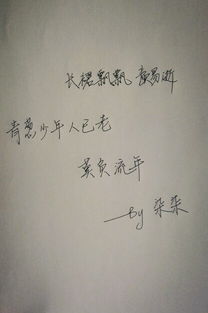 长裙飘飘 颜易逝
青葱少年人已老
莫负流年
—By 柒柒